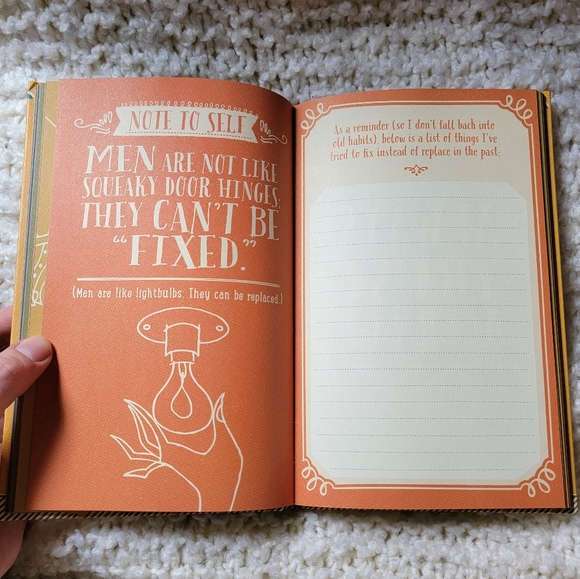 NOTE TO SELF
MEN ARE NOT LIKE
SQUEAKY DOOR HINGES;
THEY CAN'T BE
"FIXED."
(Men are like lightbulbs. They can be replaced.)
As a reminder (so I don't fall back into
old habits), below is a list of things I've
tried to fix instead of replace in the past: